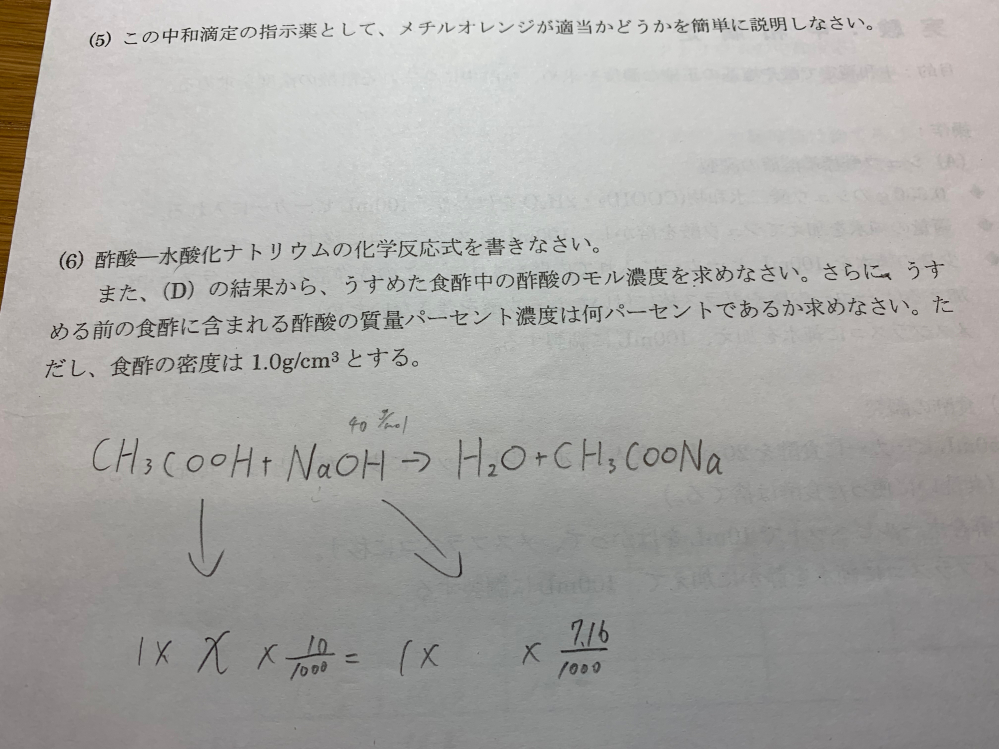 (5) この中和滴定の指示薬として、メチルオレンジが適当かどうかを簡単に説明しなさい。
(6) 酢酸―水酸化ナトリウムの化学反応式を書きなさい。
また、(D) の結果から、うすめた食酢中の酢酸のモル濃度を求めなさい。さらに、うす
める前の食酢に含まれる酢酸の質量パーセント濃度は何パーセントであるか求めなさい。た
だし、食酢の密度は 1.0g/cm³ とする。
40 g/mol
CH₃COOH + NaOH → H₂O + CH₃COONa
1 × x × 10/1000 = 1 × × 7.16/1000